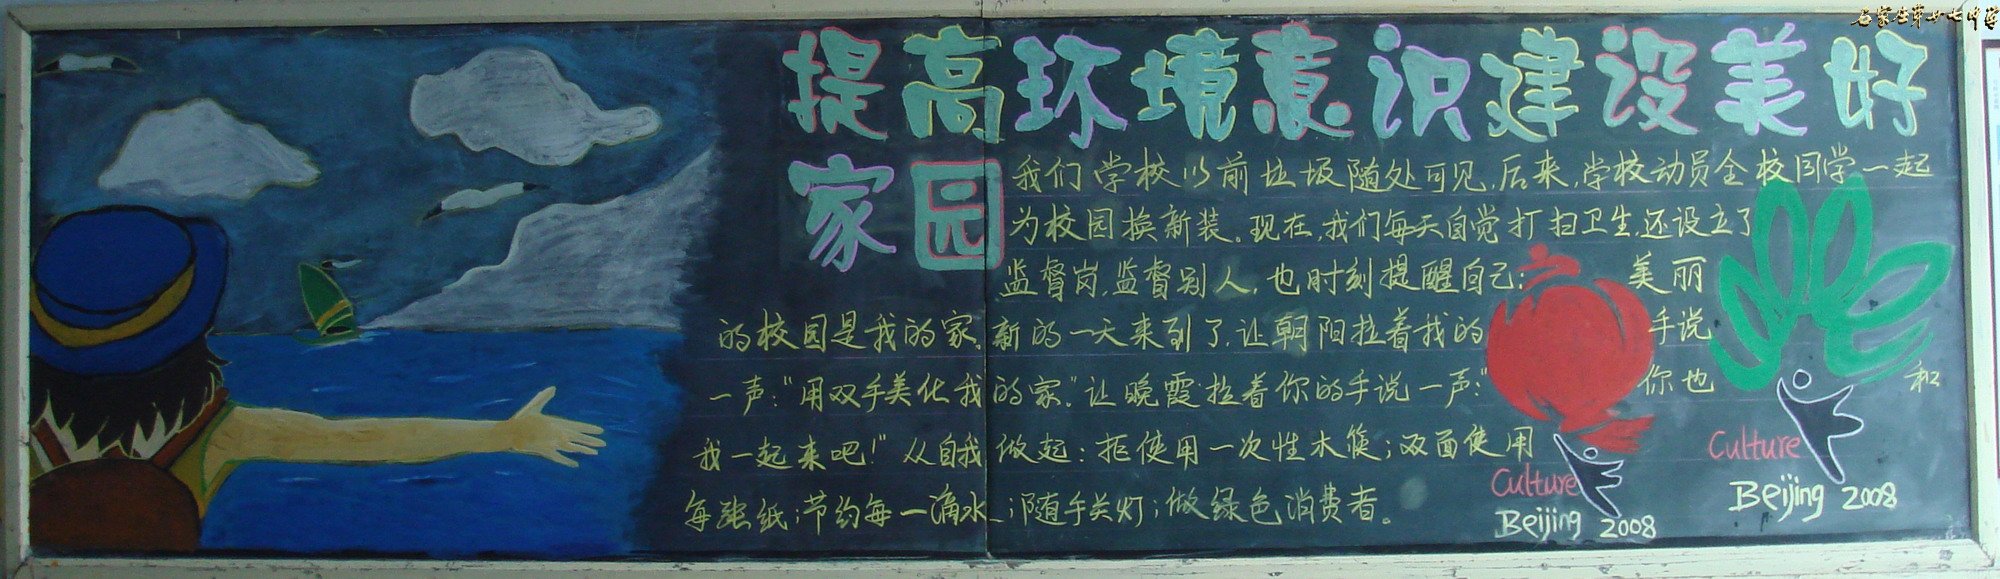 石家庄第廿七中学
提高环境意识建设美好
家园
我们学校以前垃圾随处可见,后来,学校动员全校同学一起
为校园换新装。现在,我们每天自觉打扫卫生,还设立了
监督岗,监督别人,也时刻提醒自己: 美丽
的校园是我的家。新的一天来到了,让朝阳拉着我的 手说
一声:"用双手美化我的家。"让晚霞拉着你的手说一声:" 你也 和
我一起来吧!"从自我做起:拒使用一次性木筷;双面使用
每张纸;节约每一滴水;随手关灯;做绿色消费者。
Culture
Beijing 2008
Culture
Beijing 2008